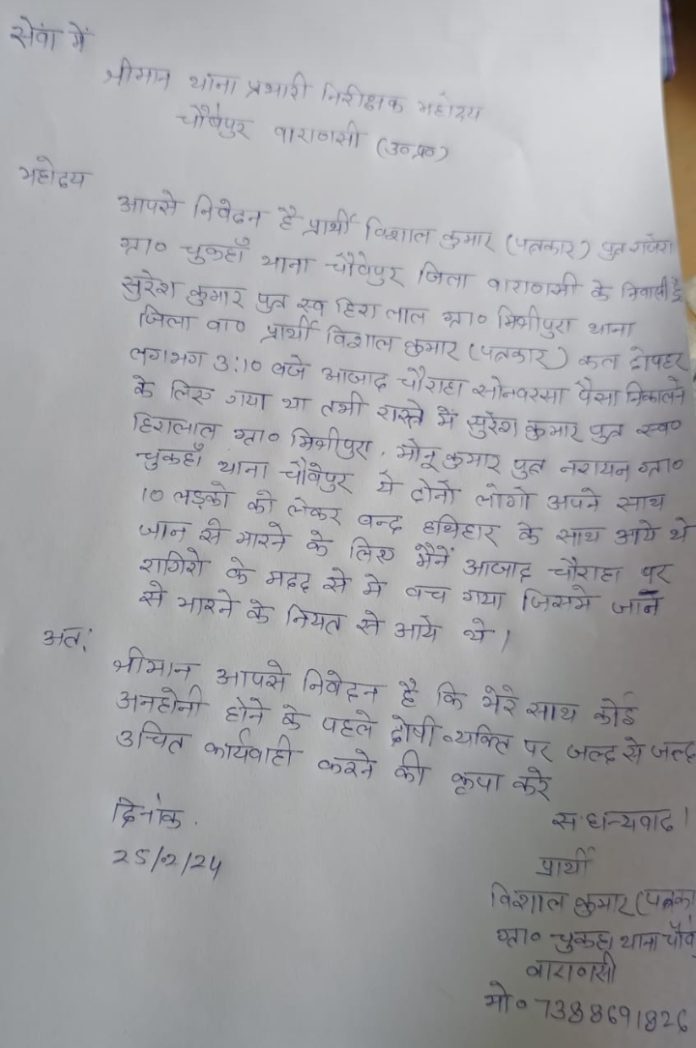 सेवा में
श्रीमान थाना प्रभारी निरीक्षक महोदय
चौबेपुर वाराणसी (उ०प्र०)
महोदय
आपसे निवेदन है प्रार्थी विशाल कुमार (पत्रकार) पुत्र
ग्रा० चुकहाँ थाना चौवेपुर जिला वाराणसी के निवासी है
सुरेश कुमार पुत्र स्व हिरा लाल ग्रा० थाना
जिला वा० प्रार्थी विशाल कुमार (पत्रकार) कल दोपहर
लगभग 3:10 बजे आजाद चौराहा सोनवरसा पैसा निकालने
के लिए गया था तभी रास्ते में सुरेश कुमार पुत्र स्व०
हिरालाल ग्रा० मोनू कुमार पुत्र नरायन ग्रा०
चुकहाँ थाना चौवेपुर ये दोनों लोगो अपने साथ
10 लड़को को लेकर वन्द हथिहार के साथ आये थे
जान से मारने के लिए मैनें आजाद चौराहा पर
रागिरो के मदद से मे वच गया जिसमे जान
से मारने के नियत से आये थे।
अतः
श्रीमान आपसे निवेदन है कि मेरे साथ कोई
अनहोनी होने के पहले दोषी व्यक्ति पर जल्द से जल्द
उचित कार्यवाही करने की कृपा करे
दिनांक. सधन्यवाद।
25/2/24 प्रार्थी
विशाल कुमार (पत्रका
ग्रा० चुकहा थाना चौवे
वाराणसी
मो० 7388691826